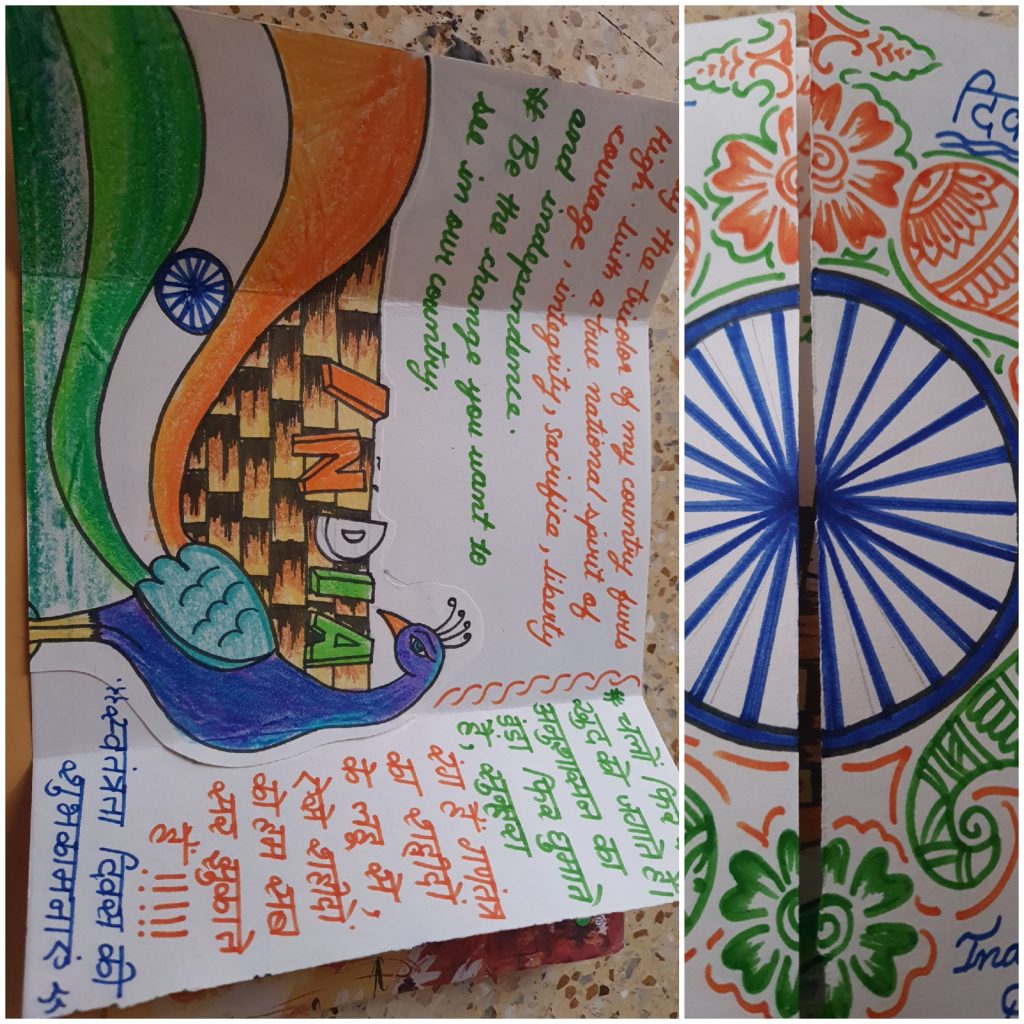 the tricolor of my country furls
High. with a true national spirit of
courage, integrity, sacrifice, liberty
and independence.
* Be the change you want to
see in our country.
INDIA
* चलो फिर
खुद को जगाते हैं
अनुशासन का
डंडा फिर घुमाते
है, सुनहरा
रंग है गणतंत्र
का शहीदो
के लहू से,
ऐसे शहीदो
को हम सब
सर झुकाते
है !!!!!!
स्वतंत्रता दिवस की
शुभकामनाएं
दिव
Ind